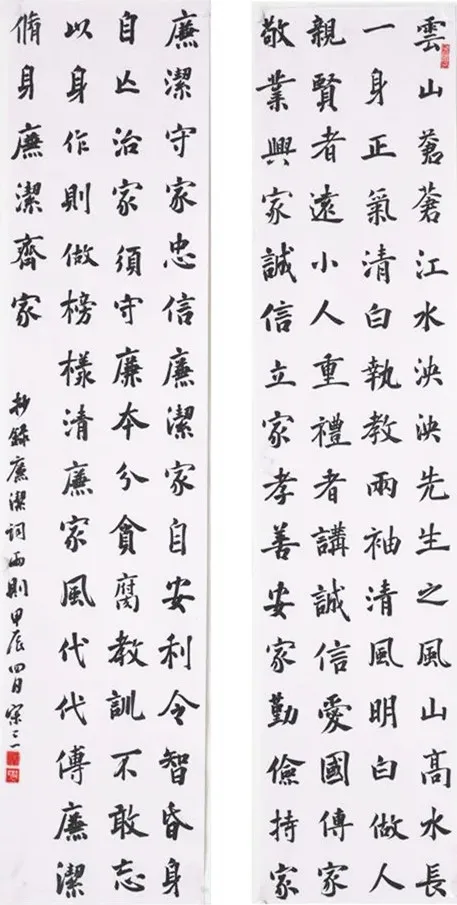 雲山蒼蒼江水泱泱先生之風山高水長
一身正氣清白執教兩袖清風明白做人
親賢者遠小人重禮者講誠信愛國傳家
敬業興家誠信立家孝善安家勤儉持家
廉潔守家忠信廉潔家自安利令智昏身
自亡治家須守廉本分貪腐教訓不敢忘
以身作則做榜樣清廉家風代代傳廉潔
脩身廉潔齊家
抄錄廉潔詞兩則甲辰四月